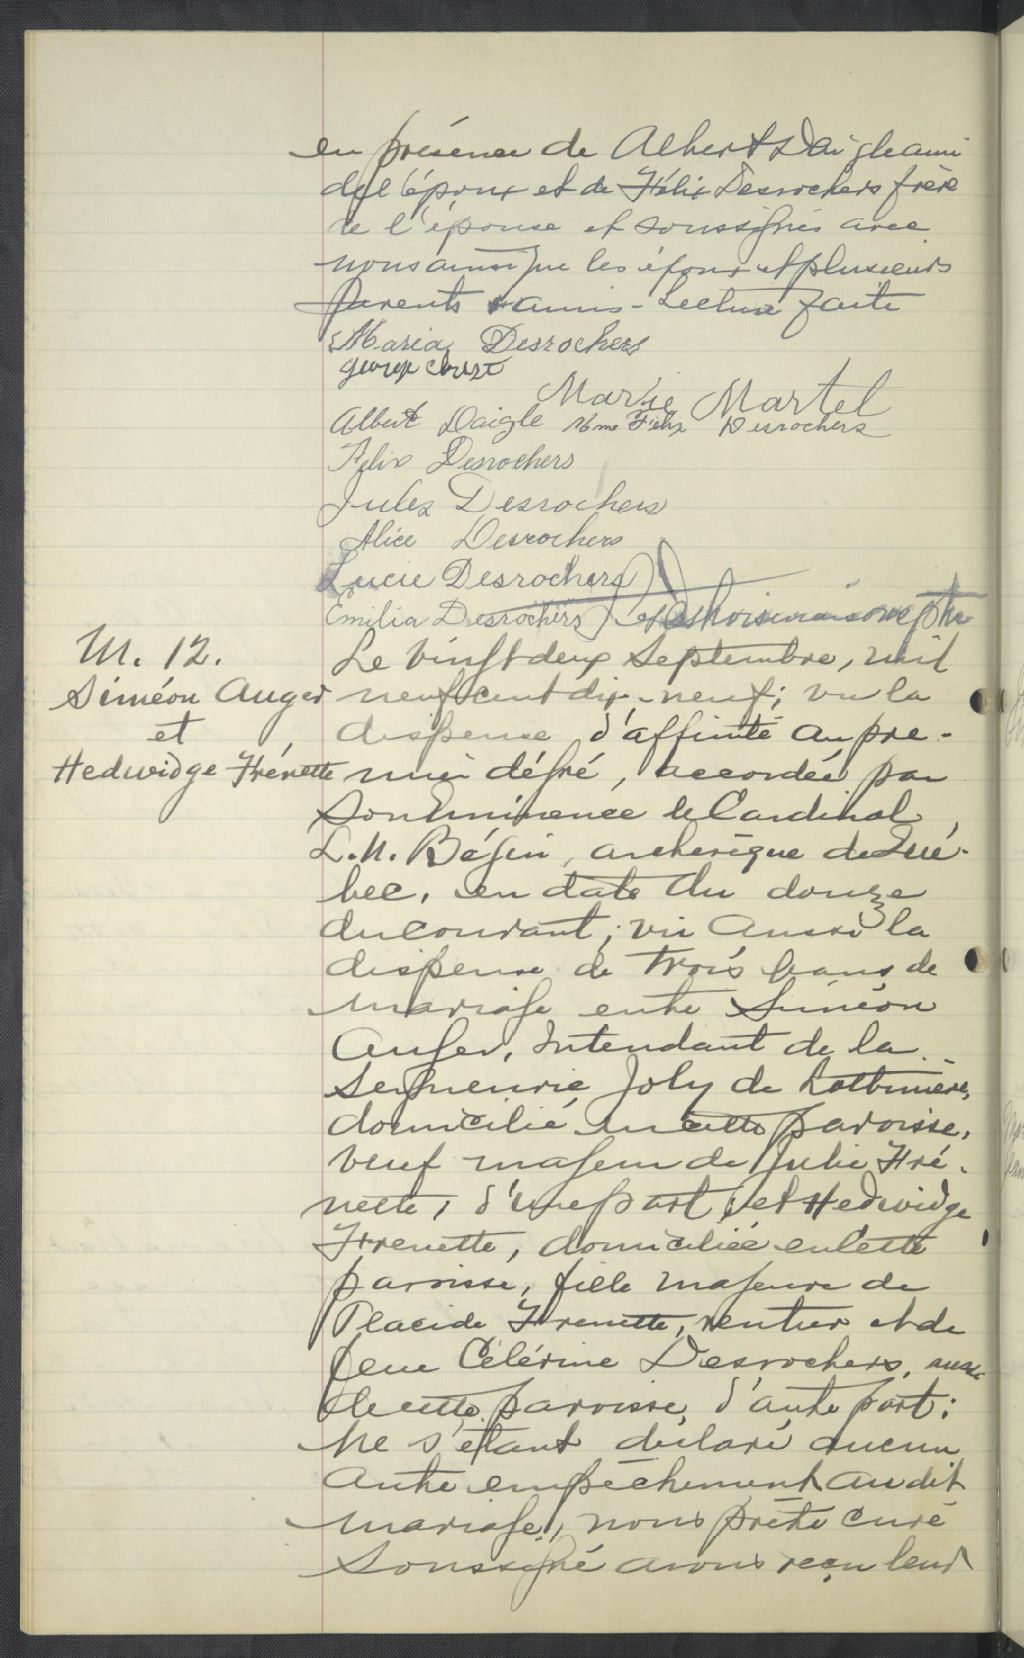 en présence de Albert Daigle ami
de l'époux et de Félix Desrochers frère
de l'épouse et soussignés avec
nous ainsi que les époux et plusieurs
parents & amis - Lecture faite
Maria Desrochers
George
Marie Martel
Albert Daigle Mme Félix Desrochers
Felix Desrochers
Jules Desrochers
Alice Desrochers
Lucie Desrochers
Emilia Desrochers ptre
M. 12.
Siméon Auger
et
Hedwidge Frénette
Le vingt deux Septembre, mil
neuf cent dix-neuf; vu la
dispense d'affinité au pre-
mier dégré, accordée par
Son Eminence le Cardinal
L. N. Bégin, archevêque de Qué-
bec, en date du douze
du courant; vu aussi la
dispense de trois bans de
mariage entre Siméon
Auger, Intendant de la
Seigneurie Joly de Lotbinière,
domicilié en cette paroisse,
veuf majeur de Julie Fré-
nette, d'une part; et Hedwidge
Frenette, domiciliée en cette
paroisse, fille majeure de
Placide Frenette, rentier et de
feue Célérine Desrochers, aussi
de cette paroisse, d'autre part;
Ne s'étant déclaré aucun
autre empêchement au dit
mariage, nous prêtre curé
soussigné avons reçu leur